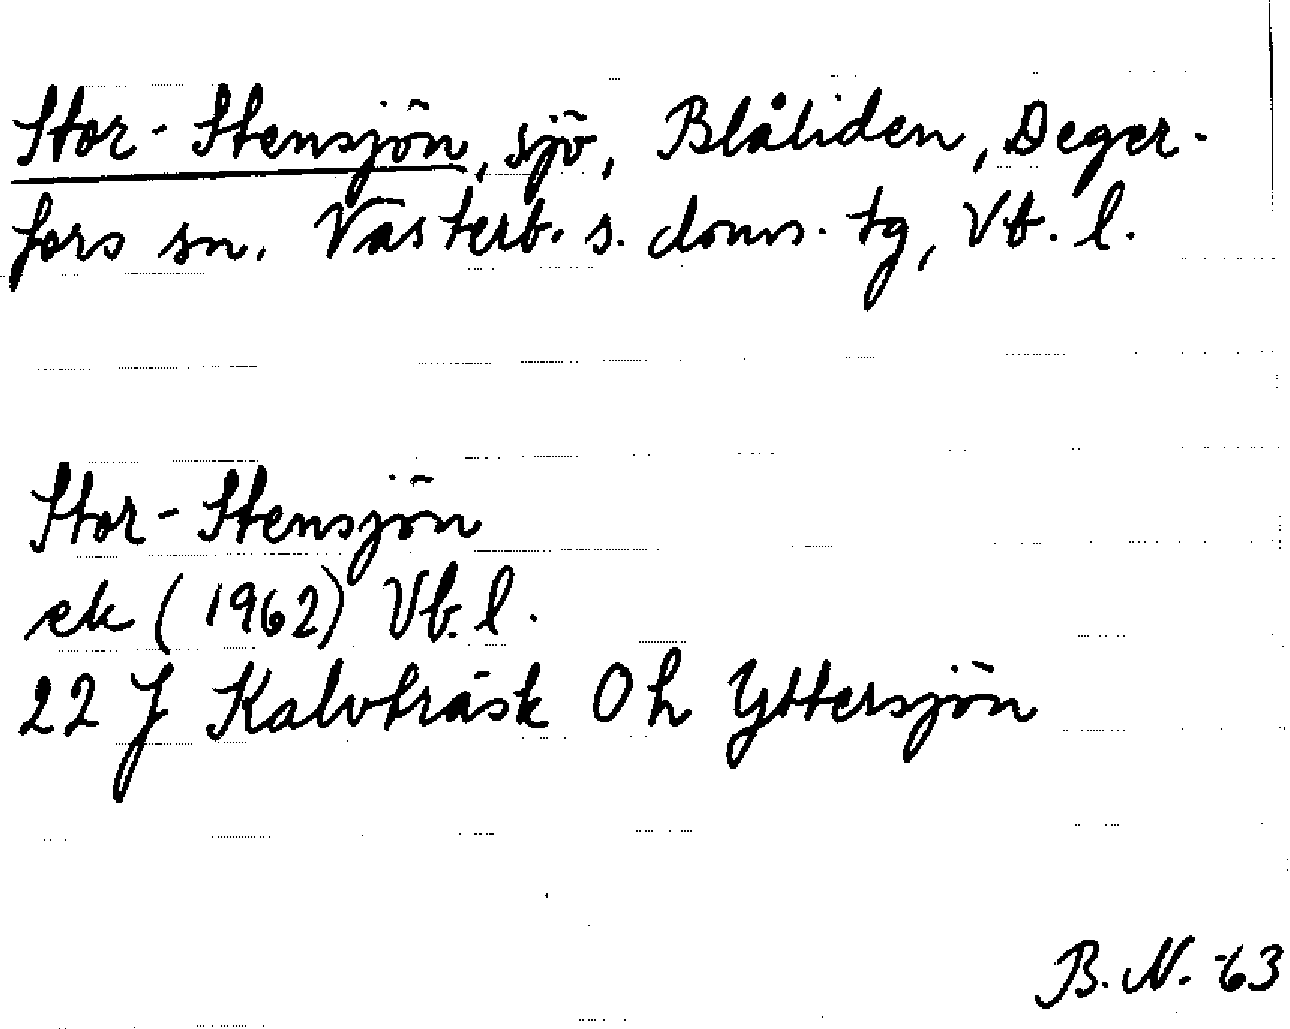 Stor-Stensjön, sjö, Blåliden, Deger-
fors sn. Västerb. s. doms. tg, Vb. l.
Stor-Stensjön
ek (1962) Vb. l.
22 J Kalvträsk 0 h Yttersjön
B. N. -63